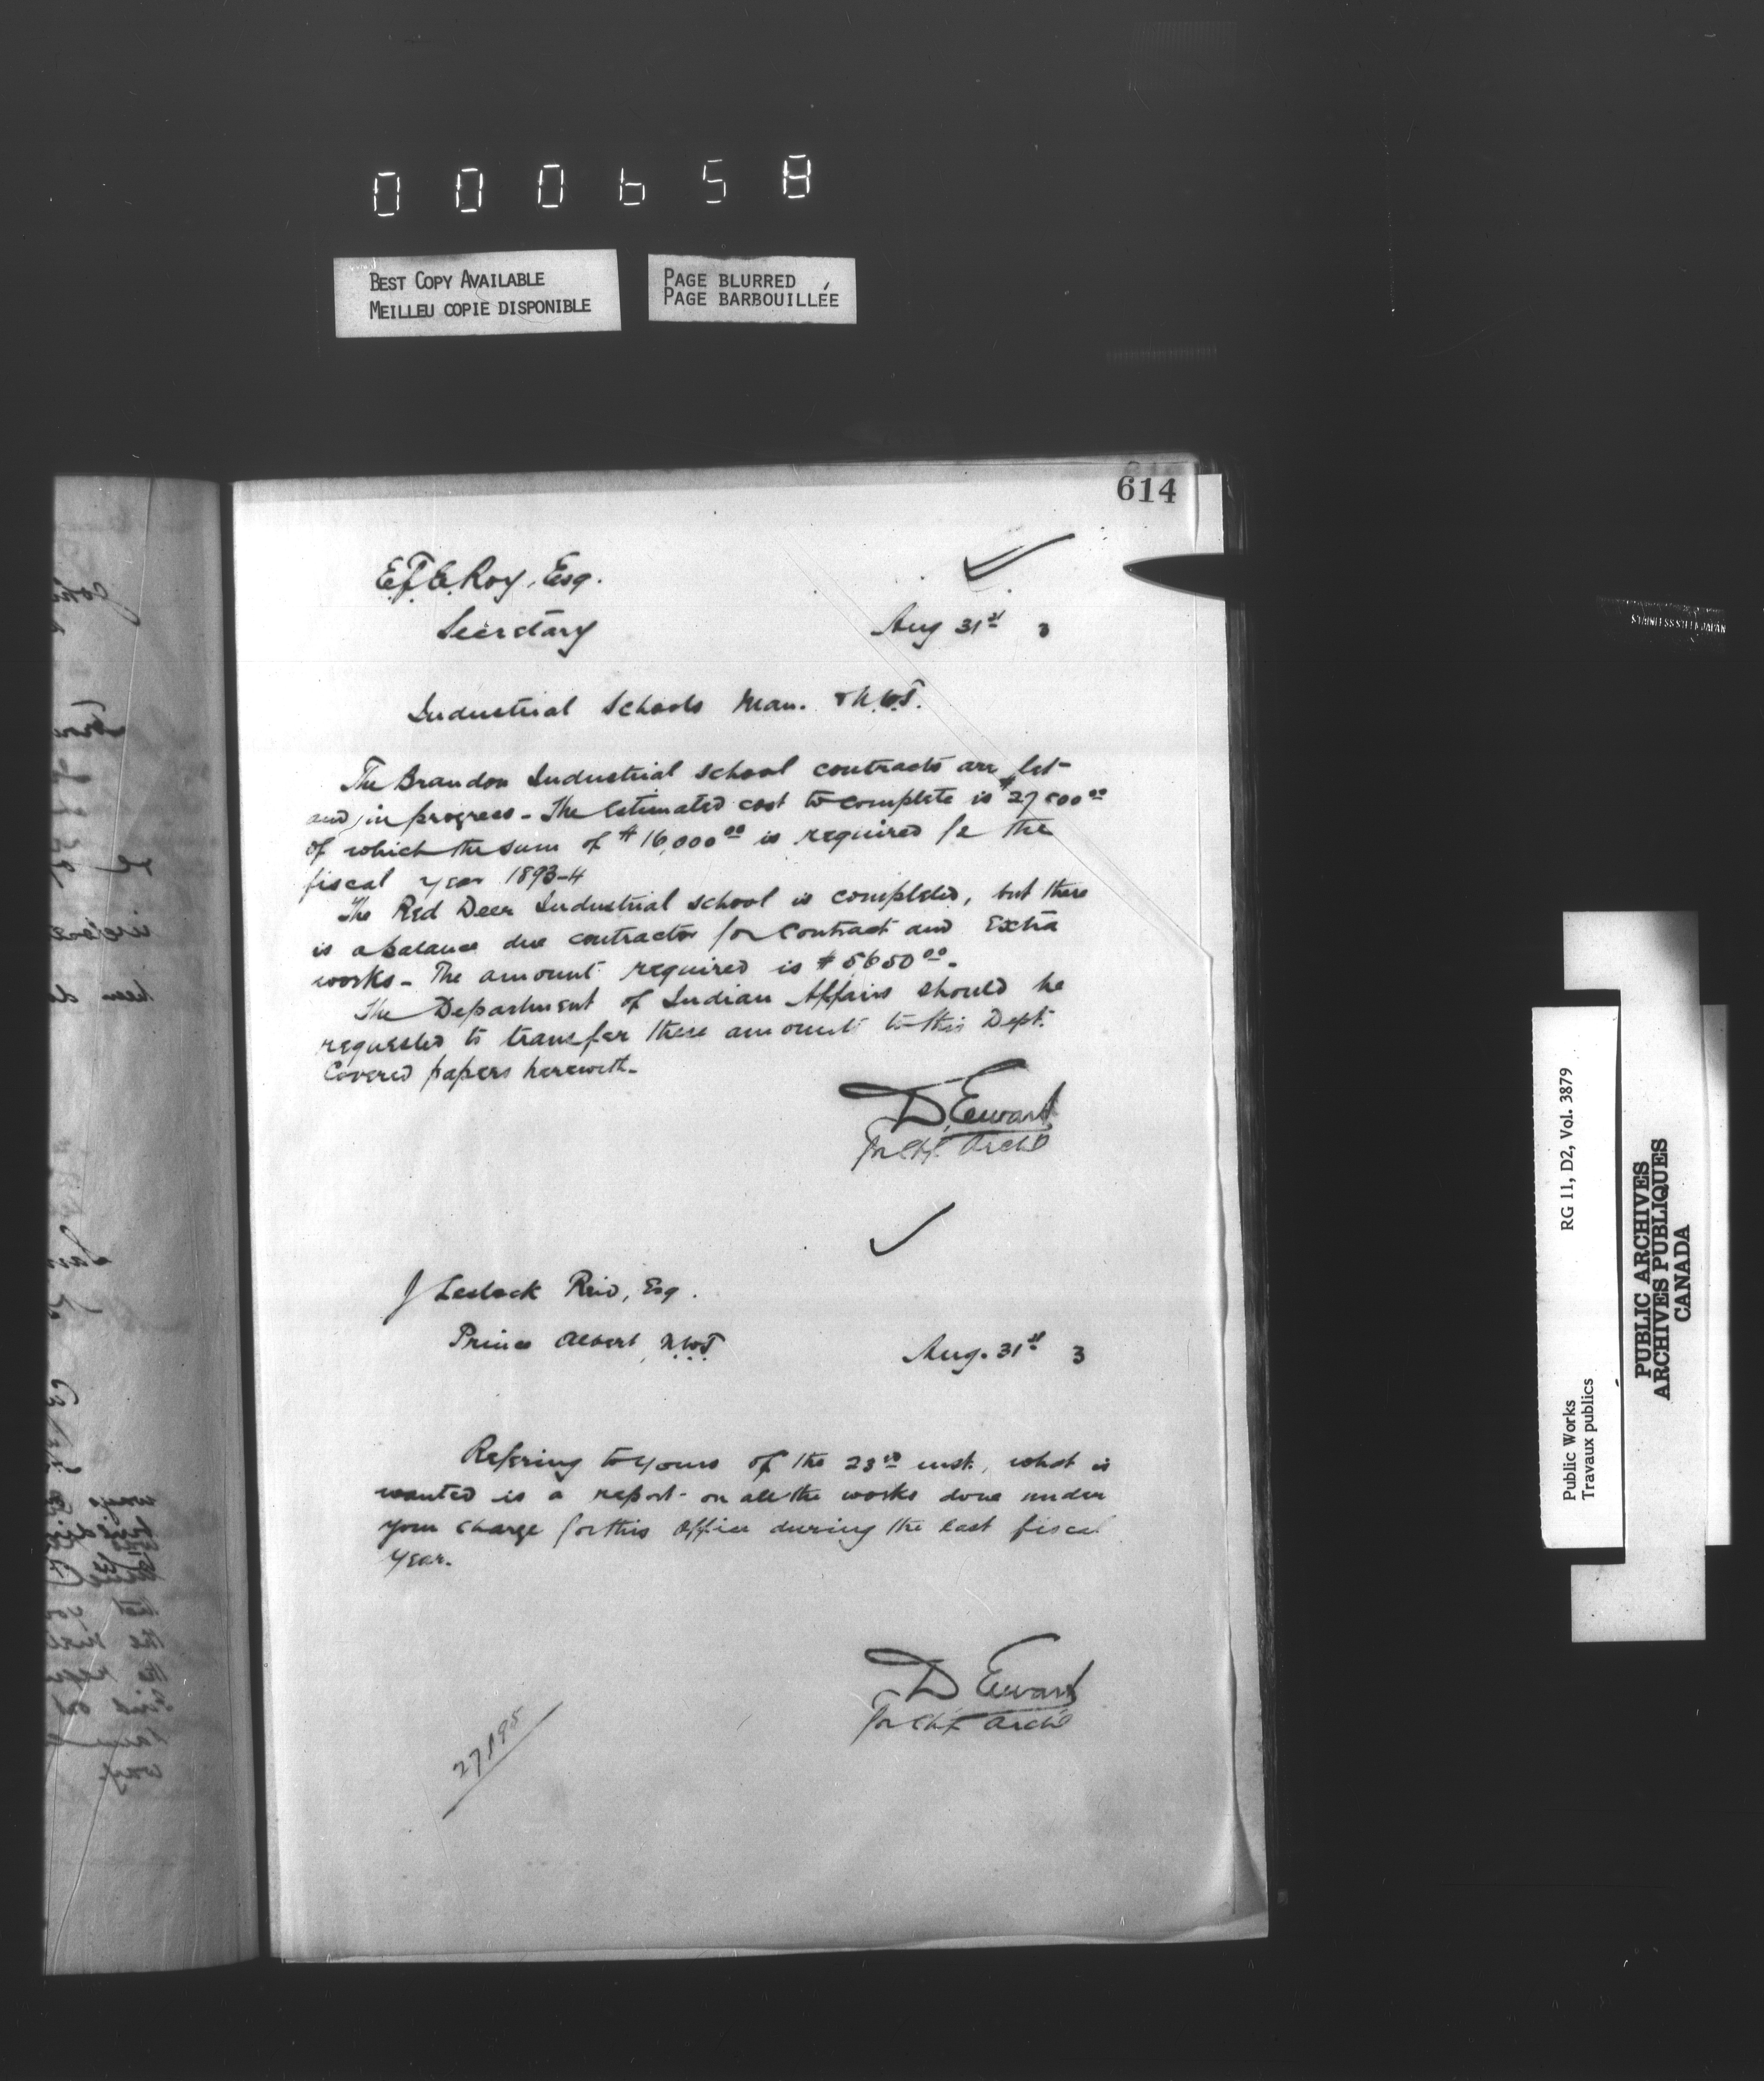 000658
BEST COPY AVAILABLE
MEILLEU COPIE DISPONIBLE
PAGE BLURRED
PAGE BARBOUILLÉE
614
E.F.E. Roy, Esq.
Secretary
Aug 31st 3
Industrial Schools Man. & N.W.T.
The Brandon Industrial school contracts are let
and in progress - The Estimated cost to complete is $27000.00
of which the sum of $16,000.00 is required for the
fiscal year 1893-4
The Red Deer Industrial school is completed, but there
is a balance due contractor for contract and Extra
works - The amount required is $5650.00.
The Department of Indian Affairs should be
requested to transfer these amounts to this Dept.
Covered papers herewith.
D. Ewart
for Chf. Archt
J Lestock Reid, Esq.
Prince Albert, N.W.T.
Aug. 31st 3
Refering to yours of the 23rd inst., what is
wanted is a report on all the works done under
your charge for this Office during the last fiscal
year.
D Ewart
for Chf. Archt
27195
STAINLESS STEEL JAPAN
RG 11, D2, Vol. 3879
Public Works
Travaux publics
PUBLIC ARCHIVES
ARCHIVES PUBLIQUES
CANADA